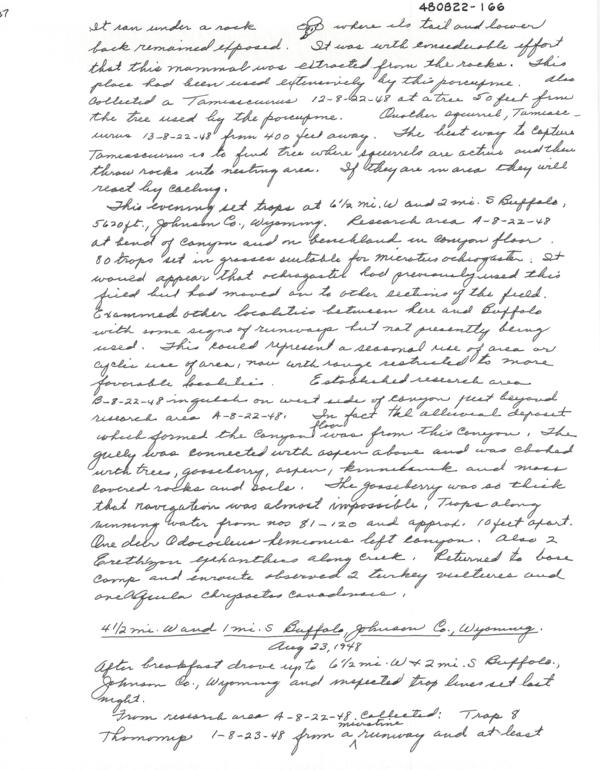 480822-166
It ran under a rock where its tail and lower
back remained exposed. It was with considerable effort
that this mammal was extracted from the rocks. This
place had been used extensively by this porcupine. Also
collected a Tamiasciurus 12-8-22-48 at a tree 50 feet from
the tree used by the porcupine. Another squirrel, Tamiasc-
iurus 13-8-22-48 from 400 feet away. The best way to capture
Tamiasciurus is to find tree where squirrels are active and then
throw rocks into nesting area. If they are in area they will
react by calling.
This evening set traps at 6 1/2 mi. W and 2 mi. S Buffalo,
5620 ft., Johnson Co., Wyoming. Research area A-8-22-48
at bend of canyon and on benchland in canyon floor.
80 traps set in grasses suitable for microtus ochrogaster. It
would appear that ochrogaster had previously used this
field but had moved on to other sections of the field.
Examined other localities between here and Buffalo
with some signs of runways but not presently being
used. This could represent a seasonal use of area or
cyclic use of area, now with range restricted to more
favorable localities. Established research area
B-8-22-48 in gulch on west side of canyon just beyond
research area A-8-22-48. In fact the alluvial deposit
which formed the canyon floor was from this canyon. The
gully was connected with aspen above and was choked
with trees, gooseberry, aspen, kinnikinik and moss
covered rocks and soils. The gooseberry was so thick
that navigation was almost impossible. Traps along
running water from nos 81-120 and approx. 10 feet apart.
One deer Odocoileus hemionus left canyon. Also 2
Erethizon epixanthus along creek. Returned to base
camp and enroute observed 2 turkey vultures and
one Aquila chrysaetos canadensis.
4 1/2 mi. W and 1 mi. S Buffalo, Johnson Co., Wyoming.
Aug 23, 1948
After breakfast drove up to 6 1/2 mi. W & 2 mi. S Buffalo,
Johnson Co., Wyoming and inspected trap lines set last
night.
From research area A-8-22-48. Collected: Trap 8
Thomomys 1-8-23-48 from a microtine runway and at least